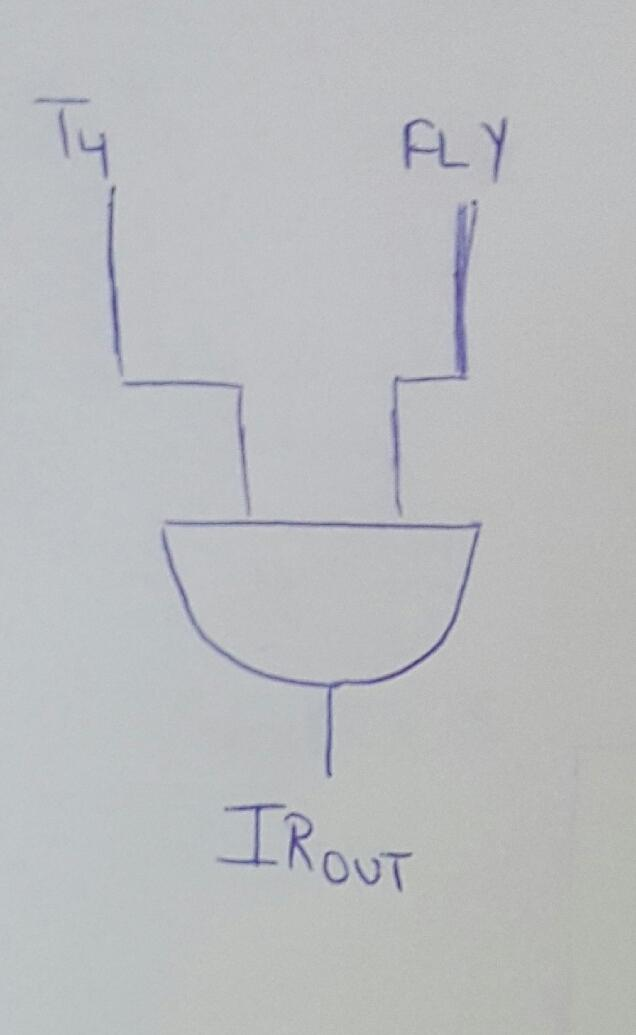 T4 FLY
IROUT